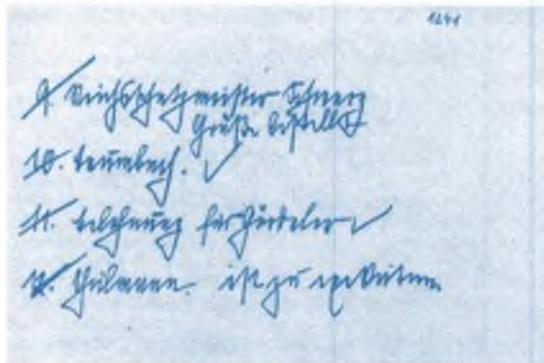 1241
9. Reichsschatzmeister Schwarz
Grüße bestellt
10.
11. Belohnung für Goerdeler
12. Thälmann. ist zu exekutieren